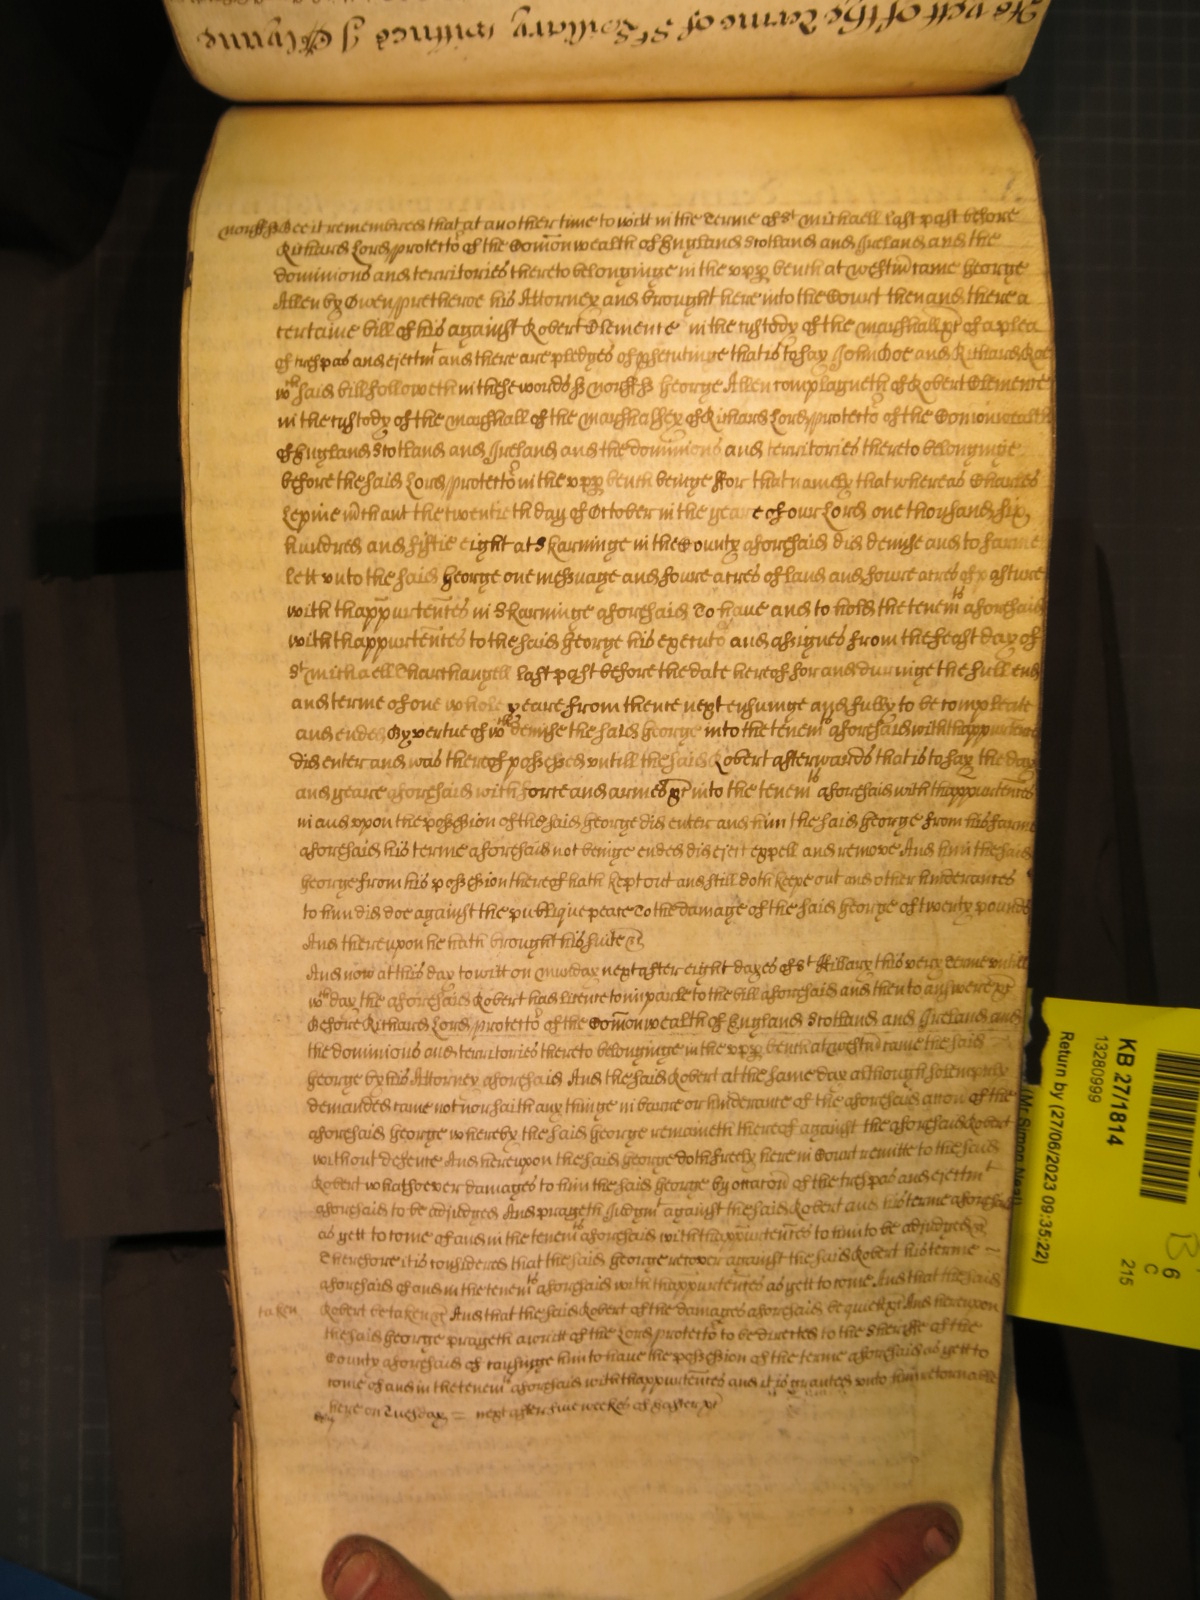 As yett of the Terme of St Hillary witnes J Glynne
Norff ss Bee it remembred that at another time to witt in the Terme of St Michaell last past before
Richard Lord protector of the Comonwealth of England Scotland and Ireland and the
dominions and territories thereto belonginge in the upp bench at Westm came George
Allen by Owen pretheroe his Attorney and brought here into the Court then and there a
certaine bill of his against Robert Clemente in the custody of the Marshall &c of a plea
of trespas and ejectmt and there are pledges of prosecutinge that is to say John Doe and Richard Roe
wch said bill followeth in these words ss Norff ss George Allen complayneth of Robert Clemente
in the custody of the Marshall of the Marshalsey of Richard Lord protector of the Comonwealth
of England Scotland and Ireland and the dominions and territories thereto belonginge
before the said Lord protector in the upp bench beinge ffor that namely that whereas Charles
Lepine mchant the twentieth day of October in the yeare of our Lord one thousand six
hundred and fiftie eight at Skarninge in the County aforesaid did demise and to farme
lett unto the said George one messuage and foure acres of land and foure acres of pasture
with thappurtences in Skarninge aforesaid To have and to hold the tenemts aforesaid
with thappurtences to the said George his executors and assignes from the feast day of
St Michaell Tharchangell last past before the date hereof for and duringe the full end
and terme of one whole yeare from thence next ensuinge and fully to be compleate
and ended By vertue of wch demise the said George into the tenemts aforesaid with thappurtences
did enter and was thereof possessed untill the said Robert afterwards that is to say the day
and yeare aforesaid with force and armes &c into the tenemts aforesaid with thappurtences
in and upon the possession of the said George did enter and him the said George from his farme
aforesaid his terme aforesaid not beinge ended did eject expell and remove And him the said
George from his possession thereof hath kept out and still doth keepe out and other hinderances
to him did doe against the publique peace To the damage of the said George of twenty pounds
And thereupon he hath brought his suite &c
And now at this day to witt on Munday next after eight dayes of St Hillary this very Terme untill
wch day the aforesaid Robert had licence to imparle to the bill aforesaid and then to answere &c
Before Richard Lord protector of the Comonwealth of England Scotland and Ireland and
the dominions and territories thereto belonginge in the upp bench at Westm came the said
George by his Attorney aforesaid And the said Robert at the same day although solemply
demanded came not nor saith any thinge in barre or hinderance of the aforesaid accon of the
aforesaid George whereby the said George remaineth thereof against the aforesaid Robert
without defence And hereupon the said George doth freely here in Court remitte to the said
Robert whatsoever damages to him the said George by occacon of the trespas and ejectmt
aforesaid to be adjudged And prayeth Judgmt against the said Robert and his terme aforesaid
as yett to come of and in the tenemts aforesaid with thappurtences to him to be adjudged &c
Therefore it is considered that the said George recover against the said Robert his terme
aforesaid of and in the tenemts aforesaid with thappurtences as yett to come And that the said
taken Robert be taken &c And that the said Robert of the damages aforesaid be quiett &c And hereupon
the said George prayeth a writt of the Lord protector to be directed to the Sheriffe of the
County aforesaid of causinge him to have the possession of the terme aforesaid as yett to
come of and in the tenemts aforesaid with thappurtences and it is granted unto him retornable
here on Tuesday next after five weekes of Easter &c
KB 27/1814
13280999
Return by (27/06/2023 09:35:22)
(Mr Simon Neal)
B 6
C
215